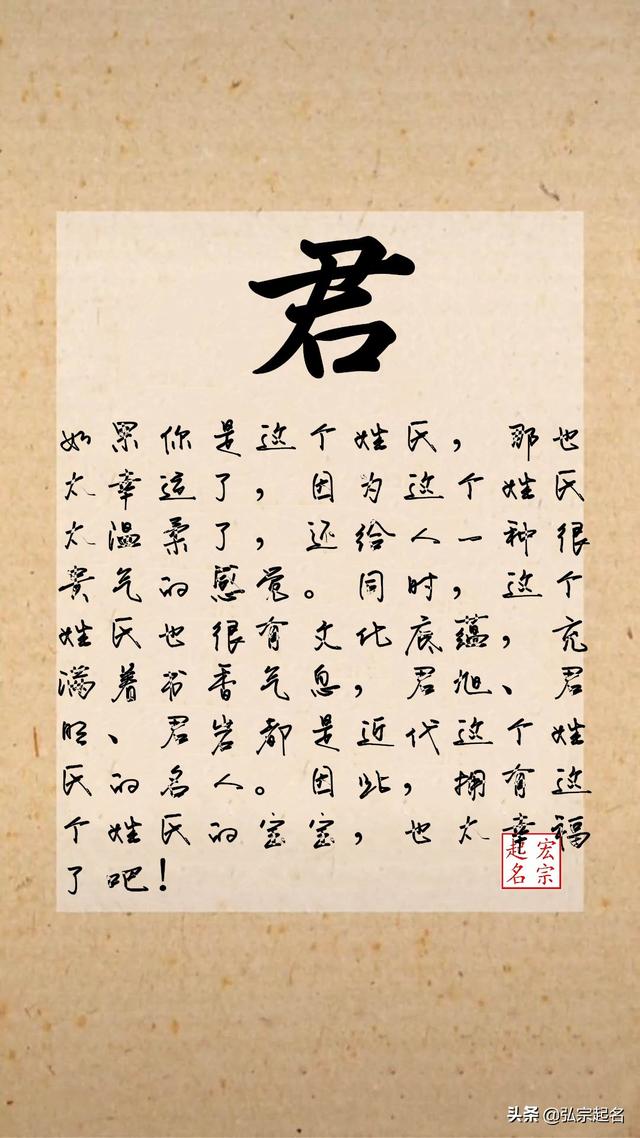 君
如果你是这个姓氏，那也
太幸运了，因为这个姓氏
太温柔了，还给人一种很
贵气的感觉。同时，这个
姓氏也很有文化底蕴，充
满着书香气息，君旭、君
明、君岩都是近代这个姓
氏的名人。因此，拥有这
个姓氏的宝宝，也太幸福
了吧！
宏宗
起名
头条 @弘宗起名